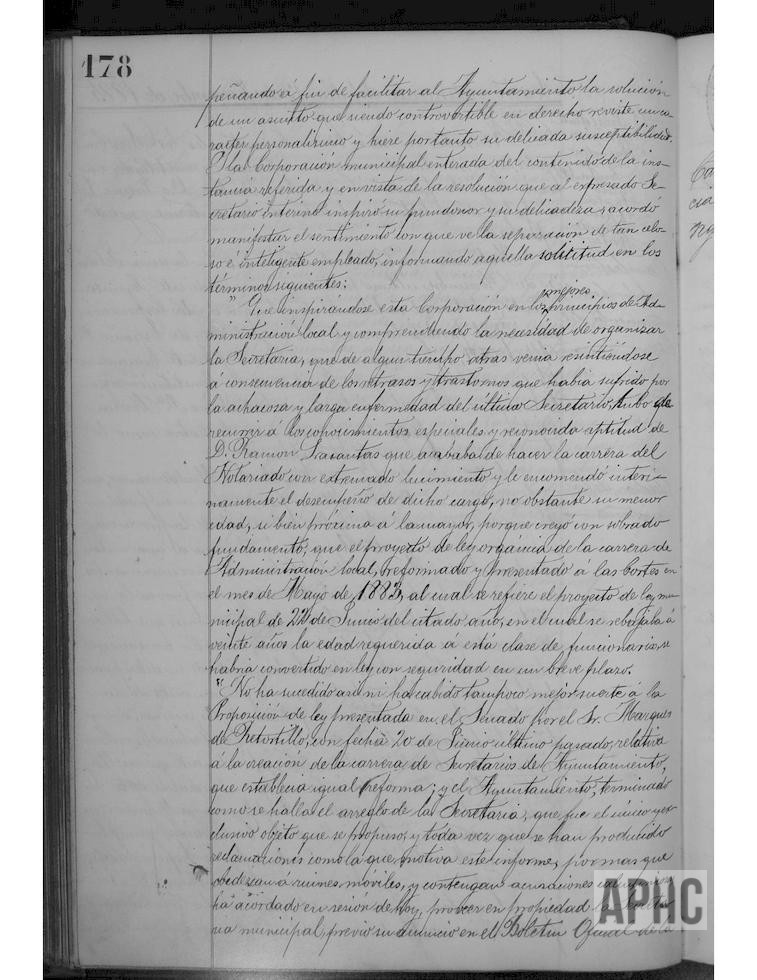 178
peñando á fin de facilitar al Ayuntamiento la solución
de un asunto que siendo controvertible en derecho reviste un ca-
racter personalísimo y hiere portanto su delicada susceptibilidad.
I la Corporación municipal enterada del contenido de la ins-
tancia referida y en vista de la resolución que al expresado Se-
cretario interino inspiró su pundonor y su delicadeza, acordó
manifestar el sentimiento con que ve la separación de tan celo-
so é inteligente empleado, informando aquella solicitud en los
términos siguientes:
mejores
" Que inspirándose esta Corporación en los principios de Ad-
ministración local y comprendiendo la necesidad de organizar
la Secretaria, que de algun tiempo atras venia resintiéndose
á consecuencia de los retrasos y trastornos que habia sufrido por
la achacosa y larga enfermedad del último Secretario, tubo que
recurrir á los conocimientos especiales y reconocida aptitud de
D. Ramon que acababa de hacer la carrera del
Notariado con extremado lucimiento y le encomendó interi-
namente el desempeño de dicho cargo, no obstante su menor
edad, si bien próxima á la mayor, porque creyó con sobrado
fundamento, que el proyecto de ley orgánica de la carrera de
Administración local, reformado y presentado á las Cortes en
el mes de Mayo de 1883, al cual se refiere el proyecto de ley mu-
nicipal de 22 de Junio del citado año, en el cual se rebajaba á
veinte años la edad requerida á está clase de funcionarios, se
habria convertido en ley con seguridad en un breve plazo.
" No ha sucedido asi ni ha cabido tampoco mejor suerte á la
Proposición de ley presentada en el Senado por el Sr. Marques
de Retortillo, con fecha 20 de Junio último pasado, relativa
á la creación de la carrera de Secretarios de Ayuntamiento,
que establecia igual reforma; y el Ayuntamiento, terminado
como se halla el arreglo de la Secretaria, que fue el único y ex-
clusivo objeto que se propuso, y toda vez que se han producido
reclamaciones como la que motiva este informe, por mas que
obedezcan á ruines móviles, y contengan acusaciones
ha acordado en sesión de hoy, proveer en propiedad la
ria municipal, previo su anuncio en el Boletin Oficial de la
APHC